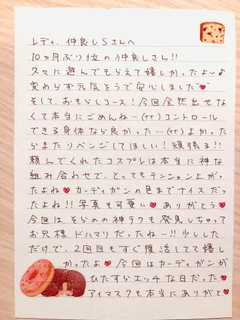 レディ、仲良しSさんへ
10ヶ月ぶり位の仲良しさん!!
久々に遊んでもらえて嬉しかったよぃぃ
変わらず元気そうで安心しました♥
そして、おもらしコース!今回全然出せな
くて本当にごめんね…(TT)コントロール
できる身体なら良かった…(TT)よかった
らまたリベンジしてほしい!頑張る!!
頼んでくれたコスプレは本当に神な
組み合わせで、とってもテンション上がっ
たよね♥カーディガンの色までナイスだっ
たよね!!写真も可愛い♥ありがとう♥
今回は、そらのの神テクも発見しちゃって
お兄様ドハマりだったね〜!!少しした
だけで、2回目もすぐ復活してて嬉し
かったよ♥今回はカーディガンが
ひたすらエッチな日だった♥
アイマスクも本当にありがと♥